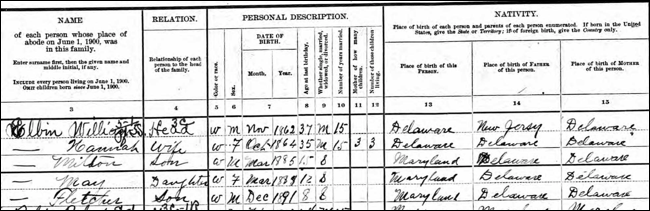 NAME
of each person whose place of
abode on June 1, 1900, was
in this family.
Enter surname first, then the given name and
middle initial, if any.
INCLUDE every person living on June 1, 1900.
OMIT children born since June 1, 1900.
RELATION.
Relationship of each
person to the head
of the family.
PERSONAL DESCRIPTION.
Color or race.
Sex.
DATE OF
BIRTH.
Month.
Year.
Age at last birthday.
Whether single, married,
widowed, or divorced.
Number of years married.
Mother of how many
children.
Number of these children
living.
NATIVITY.
Place of birth of each person and parents of each person enumerated. If born in the United
States, give the State or Territory; if of foreign birth, give the Country only.
Place of birth of this
PERSON.
Place of birth of FATHER
of this person.
Place of birth of MOTHER
of this person.
3 4 5 6 7 8 9 10 11 12 13 14 15
Elbin Head W M Nov 1862 37 M 15 Delaware New Jersy Delaware
— Hannah Wife W F Oct 1864 35 M 15 3 3 Delaware Delaware Delaware
— Milton Son W M Mar 1885 15 S Maryland Delaware Delaware
— May Daughter W F Mar 12 S Maryland Delaware Delaware
— Fletcher Son W M Dec 1891 8 S Maryland Delaware Delaware